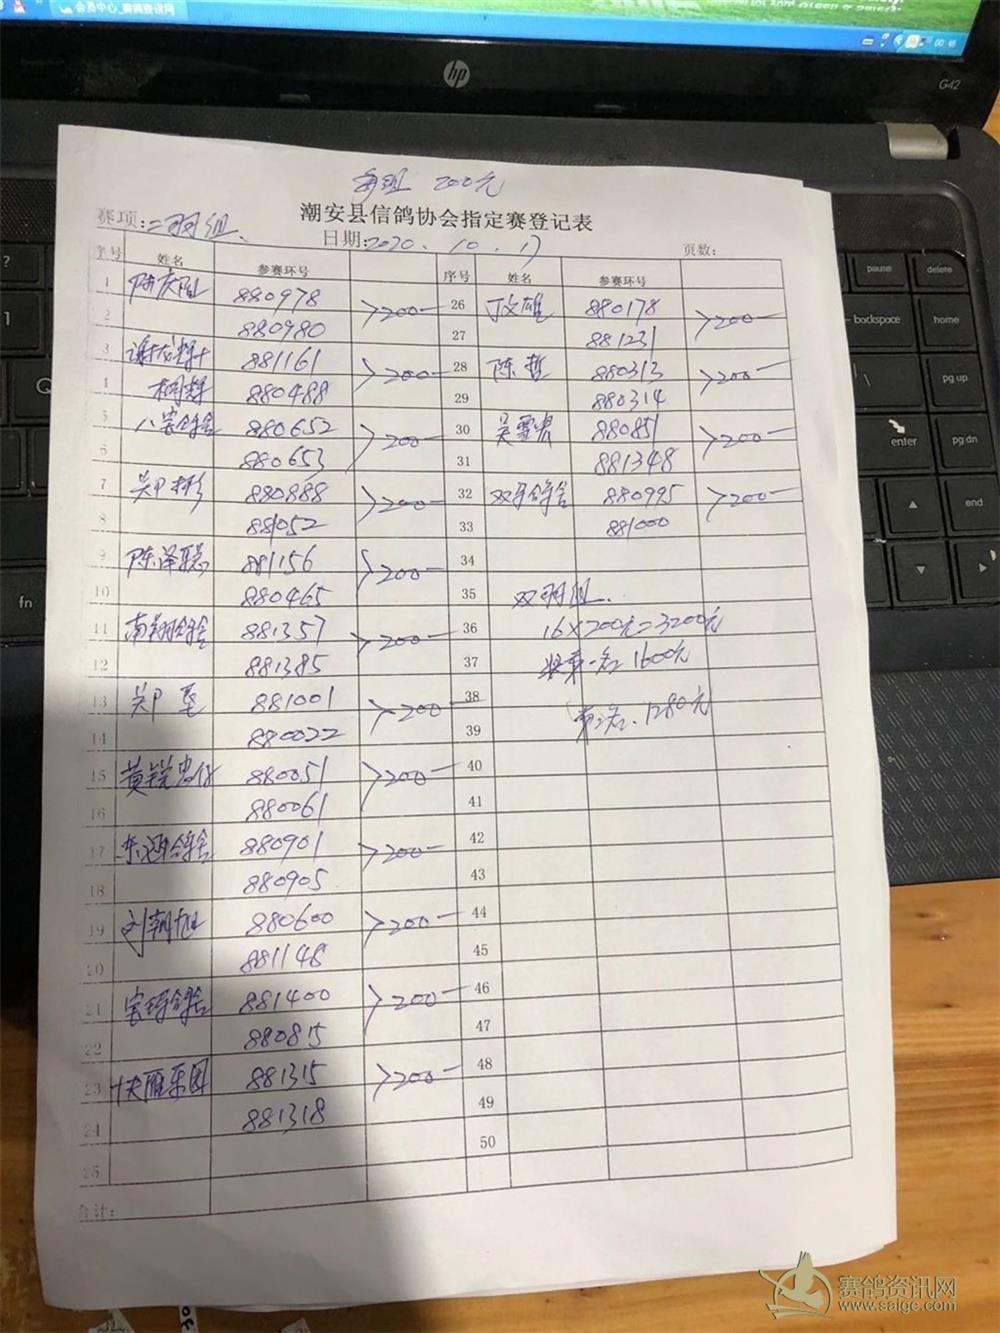 会员中心_赛鸽资讯网
00:46
hp
G42
每组 200元
潮安县信鸽协会指定赛登记表
赛项:二羽组. 日期:2020.10.17 页数:
序号 姓名 参赛环号 序号 姓名 参赛环号
1 陈庆阳 880978 >200— 26 丁文雄 880178 >200—
2 880980 27 881231
3 谢龙辉+ 881161 >200— 28 陈哲 880313 >200—
4 桐群 880488 29 880314
5 八宝鸽舍 880652 >200— 30 吴雪忠 880851 >200—
6 880653 31 881348
7 吴甲彬 880888 >200— 32 双号鸽舍 880995 >200—
8 881052 33 881000
9 陈泽聪 881156 >200— 34
10 880465 35 双羽组.
11 南翔鸽舍 881357 >200— 36 16×200元=3200元
12 881385 37 奖第一名 1600元
13 881001 >200— 38
14 880022 39 第2名. 1280元
15 黄锐忠 880051 >200— 40
16 880061 41
17 东涵鸽舍 880901 >200— 42
18 880905 43
19 刘朝旭 880600 >200— 44
20 881148 45
21 宝琦鸽舍 881400 >200— 46
22 880815 47
23 雁乐园 881315 >200— 48
24 881318 49
25 50
合计:
pause
delete
backspace
home
pg up
enter
pg dn
end
fn
Q
?
1
赛鸽资讯网
www.saige.com